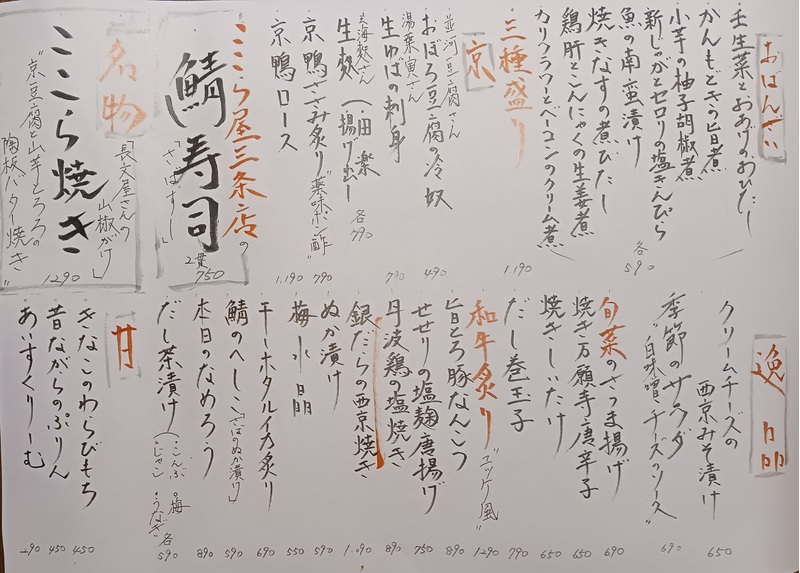 おばんざい
壬生菜とおあげのおひたし
かんもどきの旨煮
小芋の柚子胡椒煮
新じゃがとセロリの塩きんぴら
魚の南蛮漬け
各590
焼きなすの煮びたし
鶏肝とこんにゃくの生姜煮
カリフラワーとベーコンのクリーム煮
三種盛り
1.190
京
並河豆腐さん
おぼろ豆腐の冷奴
490
湯葉寅さん
生ゆばの刺身
790
生麩(・田楽
・揚げ出し
各790
京鴨ささみ炙り"薬味ポン酢"
790
京鴨ロース
1.190
こころ屋三条店の
鯖寿司
「さばずし」
2貫
750
名物
「長文屋さんの
山椒がけ」
こころ焼き
"京豆腐と山芋とろろの
陶板バター焼き"
1290
逸品
クリームチーズの
西京みそ漬け
650
季節のサラダ
"白味噌チーズのソース"
690
旬菜のさつま揚げ
690
焼き万願寺唐辛子
650
焼きしいたけ
650
だし巻玉子
790
和牛炙り"ユッケ風"
1290
旨とろ豚なんこつ
890
せせりの塩麹唐揚げ
750
丹波鶏の塩焼き
890
銀だらの西京焼き
1.090
ぬか漬け
590
梅水晶
550
干しホタルイカ炙り
690
鯖のへしこ「さばのぬか漬け」
590
本日のなめろう
890
だし茶漬け(・こんぶ ・梅
・じゃこ ・うなぎ 各590
甘
きなこのわらびもち
450
昔ながらのぷりん
450
あいすくりーむ
290